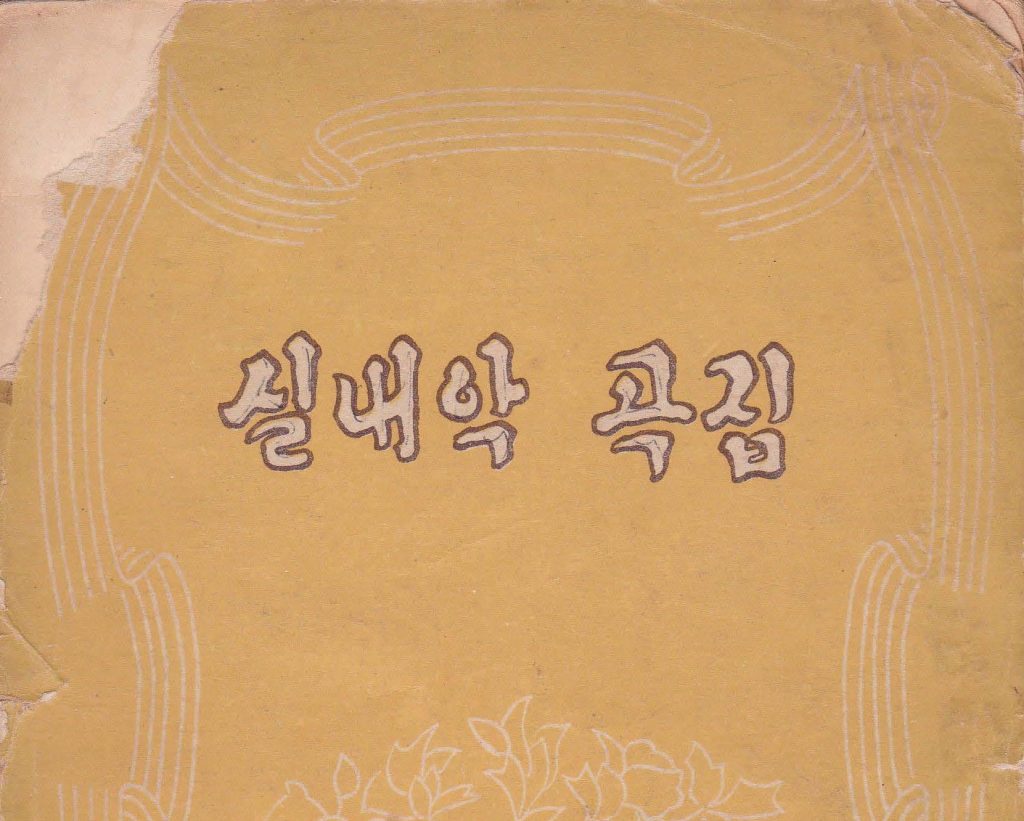 실내악 곡집